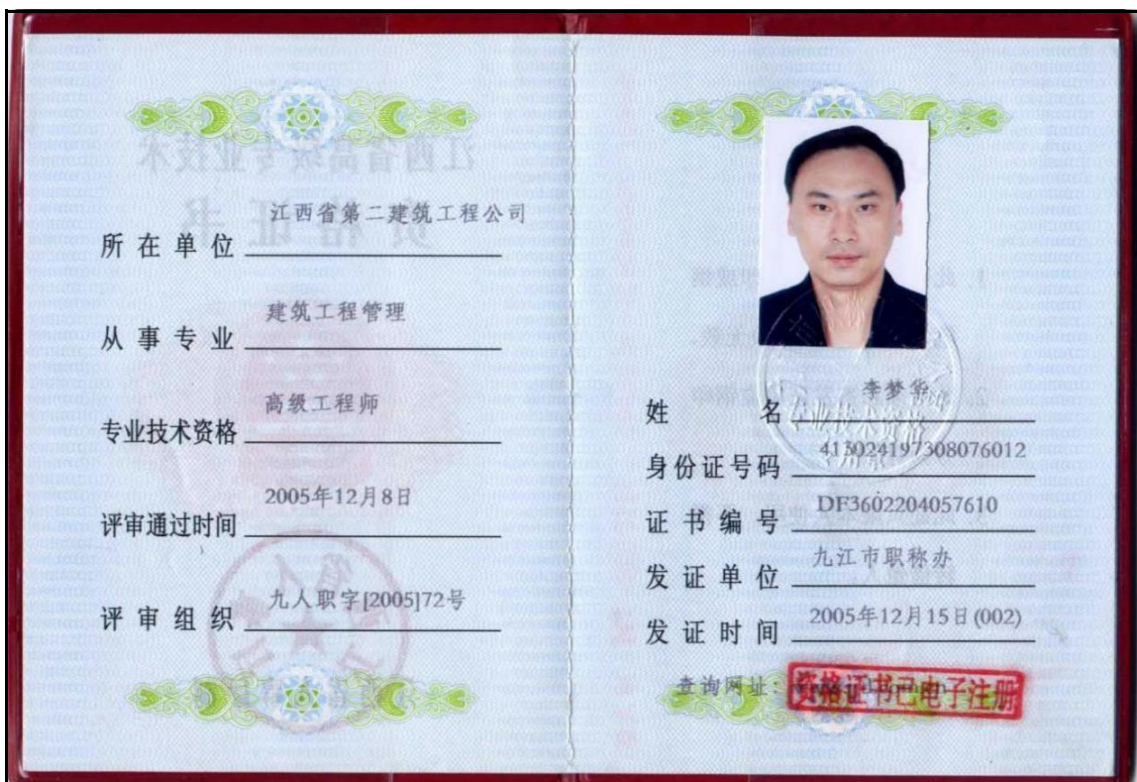 所在单位 江西省第二建筑工程公司
从事专业 建筑工程管理
专业技术资格 高级工程师
评审通过时间 2005年12月8日
评审组织 九人职字[2005]72号
姓名 李梦华
身份证号码 413024197308076012
证书编号 DF3602204057610
发证单位 九江市职称办
发证时间 2005年12月15日(002)
查询网址:
资格证书已电子注册
专业技术资格